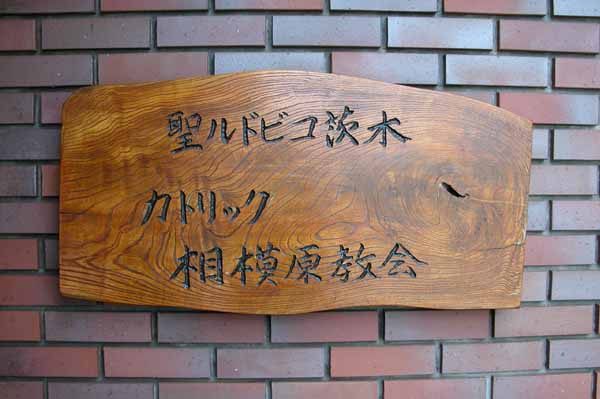 聖ルドビコ茨木
カトリック
相模原教会